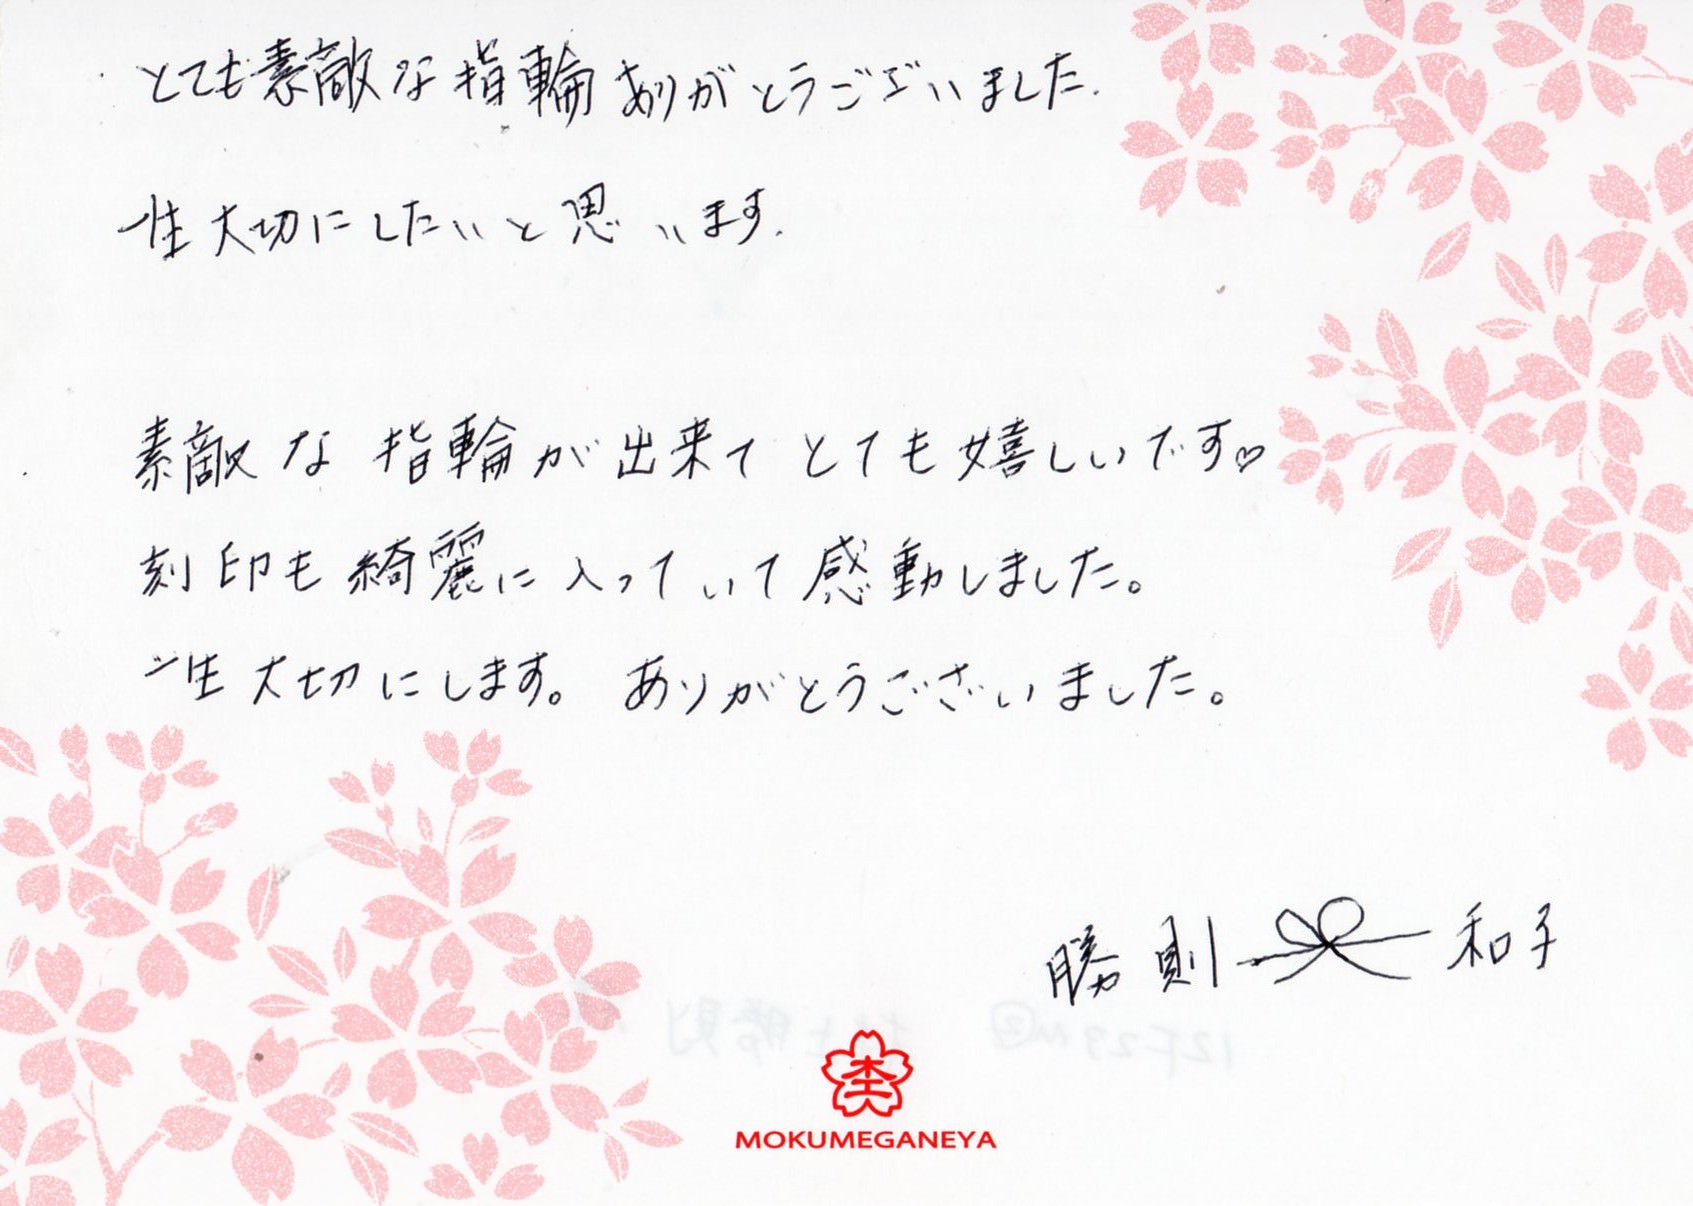 とても素敵な指輪ありがとうございました.
一生大切にしたいと思います.
素敵な指輪が出来てとても嬉しいです♡
刻印も綺麗に入っていて感動しました。
一生大切にします。ありがとうございました。
勝則 和子
MOKUMEGANEYA